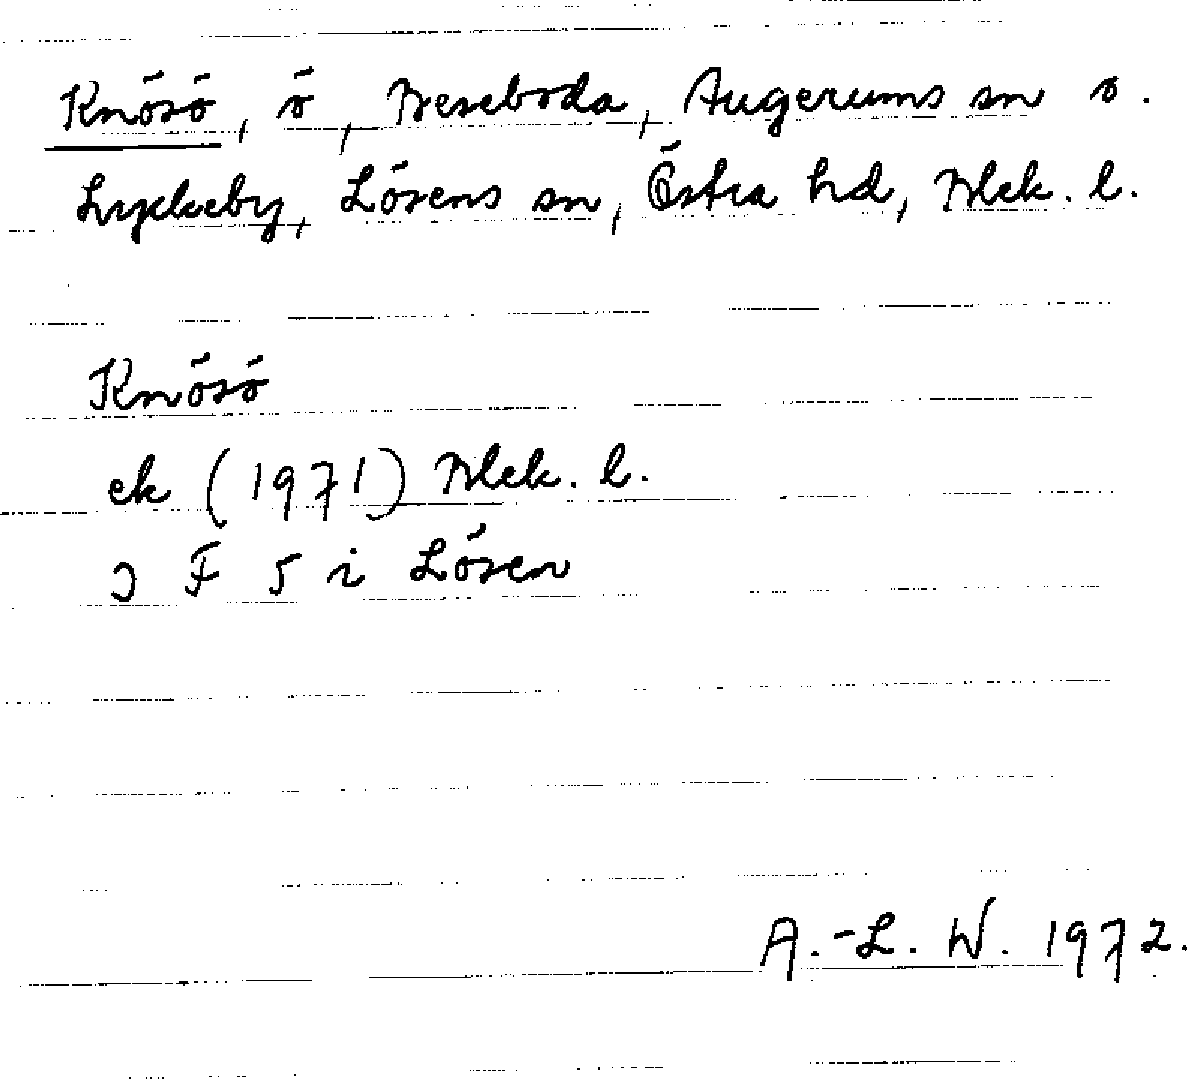 Knösö, ö, Breseboda, Augerums sn o.
Lyckeby, Lösens sn, Östra hd, Blek. l.
Knösö
ek (1971) Blek. l.
J F 5 i Lösen
A.-L. W. 1972.